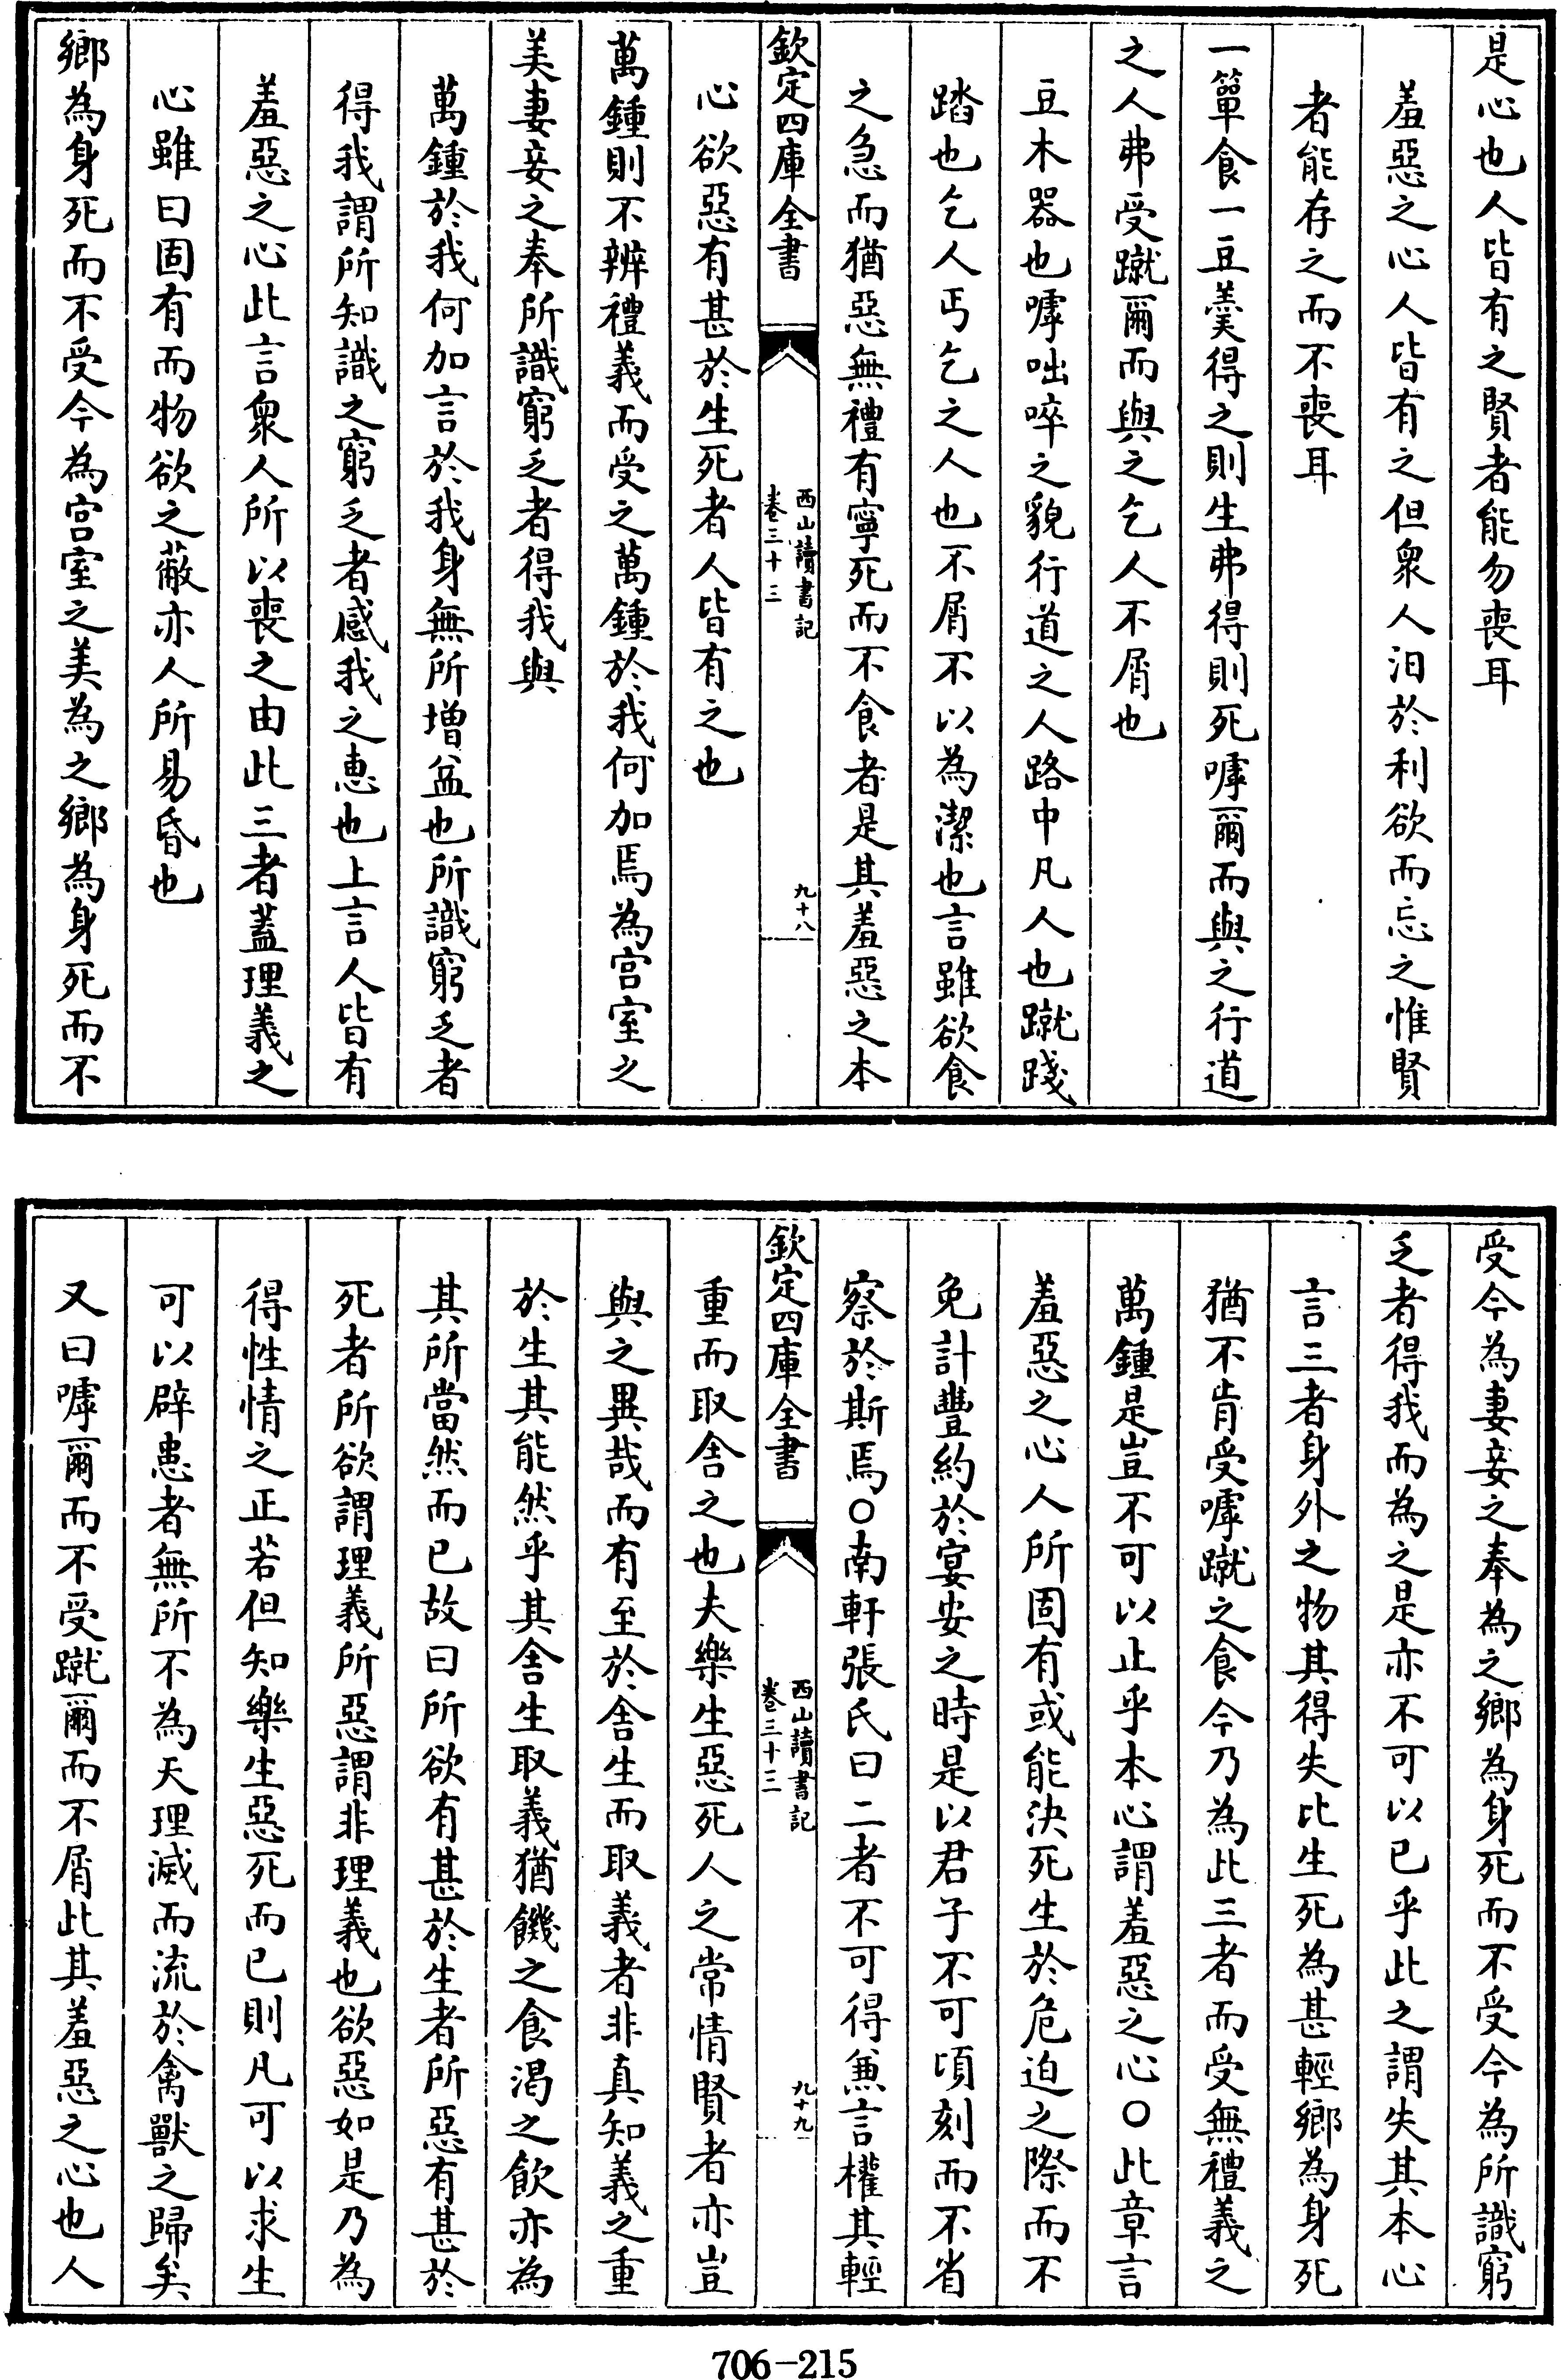 是心也人皆有之賢者能勿喪耳
羞惡之心人皆有之但衆人汩於利欲而忘之惟賢
者能存之而不喪耳
一簞食一豆羹得之則生弗得則死嘑爾而與之行道
之人弗受蹴爾而與之乞人不屑也
豆木器也嘑咄啐之貌行道之人路中凡人也蹴踐
踏也乞人丐乞之人也不屑不以為潔也言雖欲食
之急而猶惡無禮有寧死而不食者是其羞惡之本
欽定四庫全書
西山讀書記
卷三十三
九十八
心欲惡有甚於生死者人皆有之也
萬鍾則不辨禮義而受之萬鍾於我何加焉為宫室之
美妻妾之奉所識窮乏者得我與
萬鍾於我何加言於我身無所增益也所識窮乏者
得我謂所知識之窮乏者感我之惠也上言人皆有
羞惡之心此言衆人所以喪之由此三者蓋理義之
心雖曰固有而物欲之蔽亦人所易昏也
鄉為身死而不受今為宫室之美為之鄉為身死而不
受今為妻妾之奉為之鄉為身死而不受今為所識窮
乏者得我而為之是亦不可以已乎此之謂失其本心
言三者身外之物其得失比生死為甚輕鄉為身死
猶不肯受嘑蹴之食今乃為此三者而受無禮義之
萬鍾是豈不可以止乎本心謂羞惡之心○此章言
羞惡之心人所固有或能決死生於危迫之際而不
免計豐約於宴安之時是以君子不可頃刻而不省
察於斯焉○南軒張氏曰二者不可得兼言權其輕
欽定四庫全書
西山讀書記
卷三十三
九十九
重而取舍之也夫樂生惡死人之常情賢者亦豈
與之異哉而有至於舍生而取義者非真知義之重
於生其能然乎其舍生取義猶饑之食渴之飲亦為
其所當然而已故曰所欲有甚於生者所惡有甚於
死者所欲謂理義所惡謂非理義也欲惡如是乃為
得性情之正若但知樂生惡死而已則凡可以求生
可以辟患者無所不為天理滅而流於禽獸之歸矣
又曰嘑爾而不受蹴爾而不屑此其羞惡之心也人
706-215